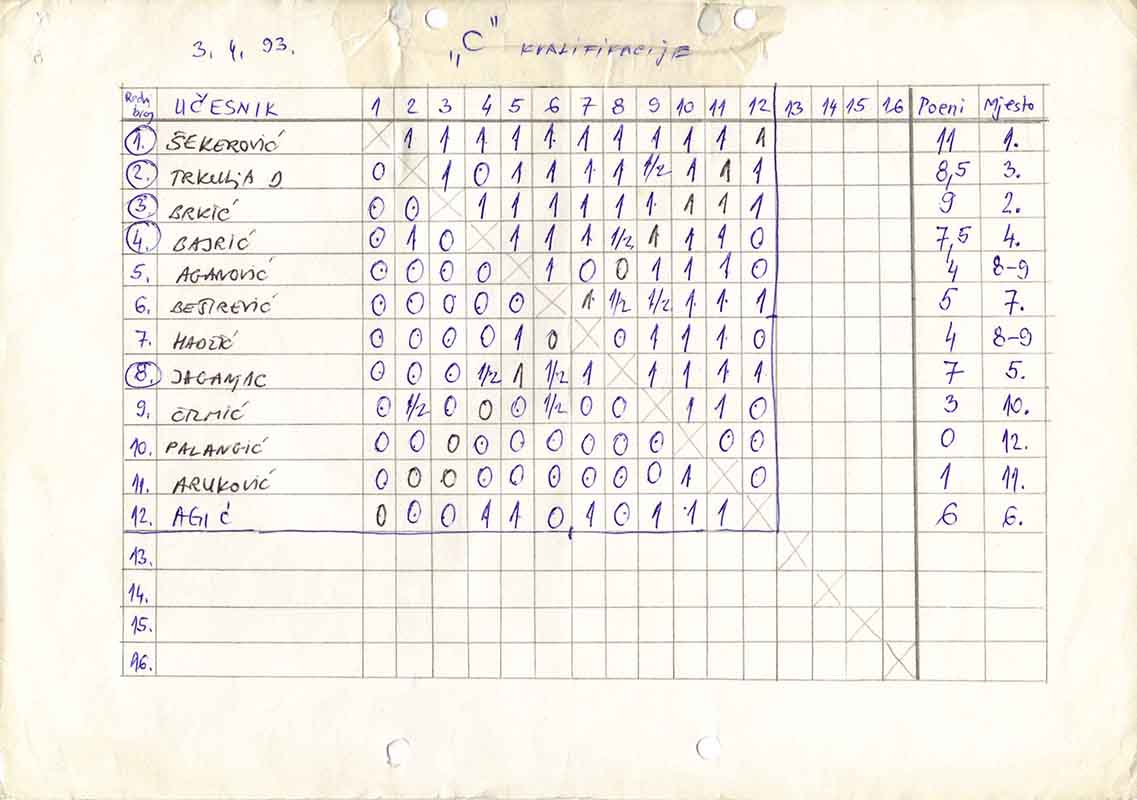 3. 4. 93. „C" KVALIFIKACIJE
Redn broj UČESNIK 1 2 3 4 5 6 7 8 9 10 11 12 13 14 15 16 Poeni Mjesto
1. ŠEKEROVIĆ X 1 1 1 1 1 1 1 1 1 1 1 11 1.
2. TRKULJA D 0 X 1 0 1 1 1 1 1/2 1 1 1 8,5 3.
3. BRKIĆ 0 0 X 1 1 1 1 1 1 1 1 1 9 2.
4. BAJRIĆ 0 1 0 X 1 1 1 1/2 1 1 1 0 7,5 4.
5. AGANOVIĆ 0 0 0 0 X 1 0 0 1 1 1 0 4 8-9
6. BEŠIREVIĆ 0 0 0 0 0 X 1 1/2 1/2 1 1 1 5 7.
7. 0 0 0 0 1 0 X 0 1 1 1 0 4 8-9
8. JAGANJAC 0 0 0 1/2 1 1/2 1 X 1 1 1 1 7 5.
9. 0 1/2 0 0 0 1/2 0 0 X 1 1 0 3 10.
10. PALANGIĆ 0 0 0 0 0 0 0 0 0 X 0 0 0 12.
11. ARUKOVIĆ 0 0 0 0 0 0 0 0 0 1 X 0 1 11.
12. AGIĆ 0 0 0 1 1 0, 1 0 1 1 1 X 6 6.
13. X
14. X
15. X
16. X